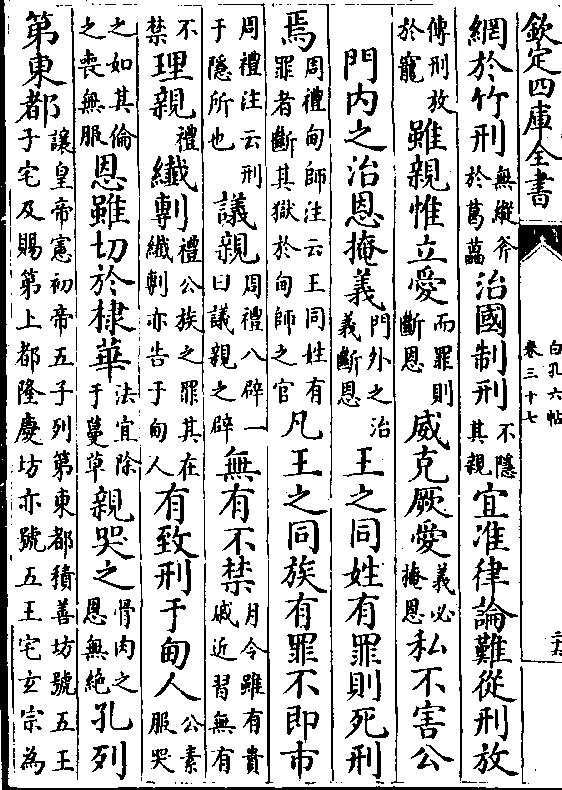 欽定四庫全書
白孔六帖
卷三十七
網於竹刑無縱斧於葛藟治國制刑不隱其親宜准律論難從刑放
傳刑放於寵雖親惟立愛而罪則斷恩威克厥愛義必掩恩私不害公
門内之治恩掩義門外之治義斷恩王之同姓有罪則死刑
焉周禮甸師注云王同姓有罪者斷其獄於甸師之官凡王之同族有罪不即市
周禮注云刑于隱所也議親周禮八辟一曰議親之辟無有不禁月令雖有貴戚近習無有
不禁理親禮纖剸禮公族之罪其在纖剸亦告于甸人有致刑于甸人公素服哭
之如其倫之喪無服恩雖切於棣華法宜除于蔓草親哭之骨肉之恩無絶孔列
第東都讓皇帝憲初帝五子列第東都積善坊號五王子宅及賜第上都隆慶坊亦號五王宅玄宗為